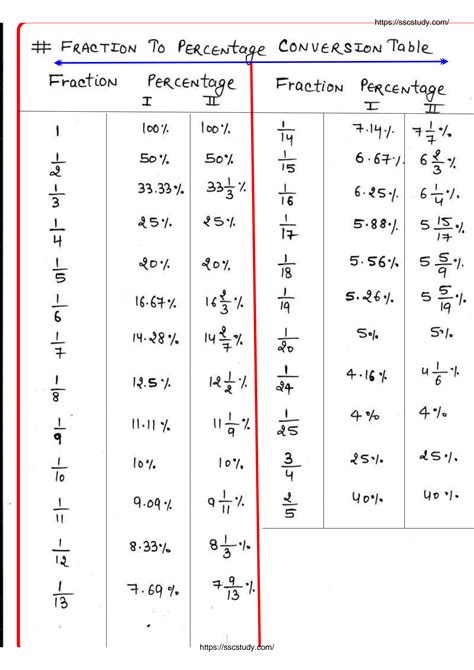 https://sscstudy.com/
# FRACTION TO PERCENTAGE CONVERSION TABLE
FRACTION PERCENTAGE
I II
1 100% 100%
1/2 50% 50%
1/3 33.33% 33 1/3 %
1/4 25% 25%
1/5 20% 20%
1/6 16.67% 16 2/3 %
1/7 14.28% 14 2/7 %
1/8 12.5% 12 1/2 %
1/9 11.11% 11 1/9 %
1/10 10% 10%
1/11 9.09% 9 1/11 %
1/12 8.33% 8 1/3 %
1/13 7.69% 7 9/13 %
FRACTION PERCENTAGE
I II
1/14 7.14% 7 1/7 %
1/15 6.67% 6 2/3 %
1/16 6.25% 6 1/4 %
1/17 5.88% 5 15/17 %
1/18 5.56% 5 5/9 %
1/19 5.26% 5 5/19 %
1/20 5% 5%
1/24 4.16% 4 1/6 %
1/25 4% 4%
3/4 25% 25%
2/5 40% 40%
https://sscstudy.com/